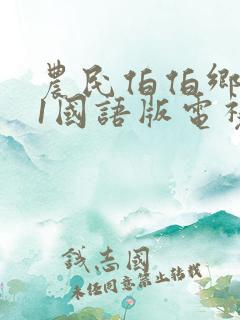 農民伯伯鄉
1國語版電
錢志國
未经同意禁止转载